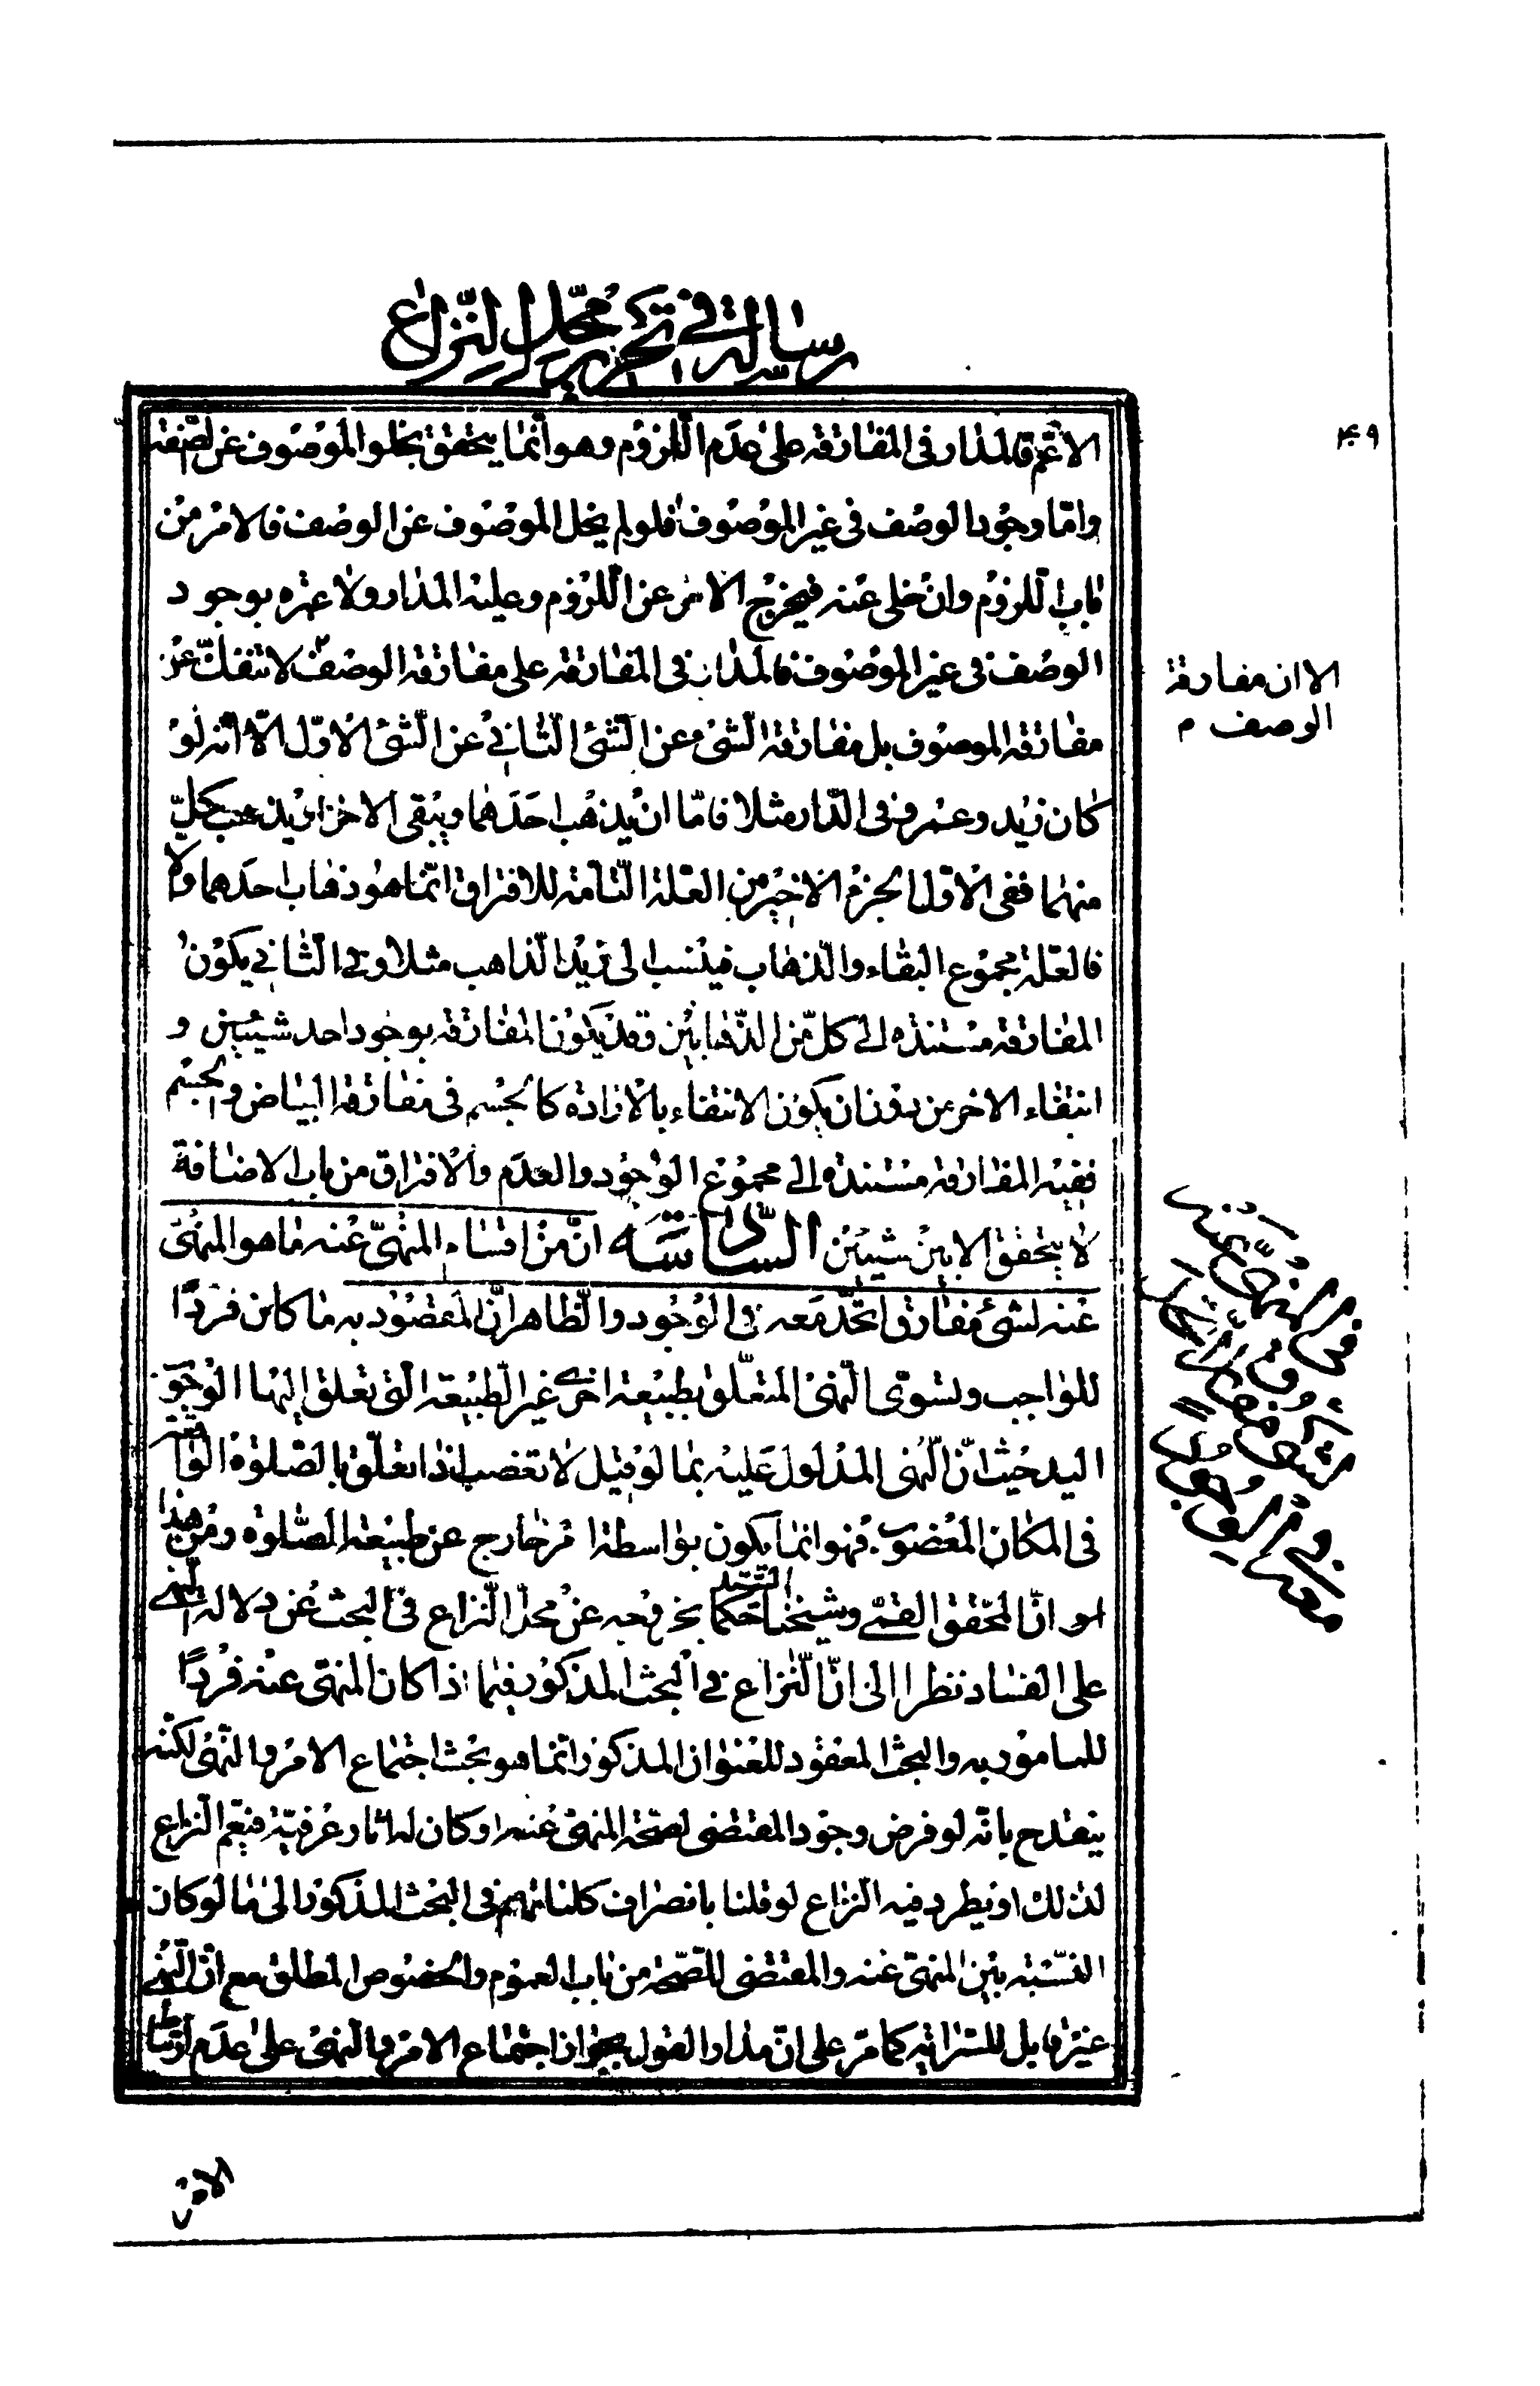 رسالة في تحرير محل النزاع
الاعم فالمدار في المفارقة على عدم اللزوم وهو انما يتحقق بخلو الموصوف عن الصفة
وامّا وجود الوصف في غير الموصوف فلو لم يخل الموصوف عن الوصف فالامر من
باب اللزوم وان خلى عنه فيخرج الامر عن اللزوم وعليه المدار ولا عبرة بوجود
الوصف في غير الموصوف فالمدار في المفارقة على مفارقة الوصف لا تنفك عن
مفارقة الموصوف بل مفارقة الشئ عن الشئ الثاني عن الشئ الاوّل الّا انّه لو
كان زيد وعمرو في الدّار مثلا فامّا ان يذهب احدهما ويبقى الاخر او يذهب كلّ
منهما ففى الاوّل الجزء الاخير من العلة التّامة للافتراق انّما هو ذهاب احدهما والا
فالعلة مجموع البقاء والذهاب فينسب الى زيد الذاهب مثلا وفي الثاني يكون
المفارقة مستندة الى كلّ من الذهابين وقد يكون المفارقة بوجود احد شيئين و
انتفاء الاخر من دون ان يكون الانتفاء بالارادة كالجسم في مفارقة البياض والجسم
ففيه المفارقة مستندة الى مجموع الوجود والعدم والافتراق من باب الاضافة
لا يتحقق الا بين شيئين السّادسة انّ من اقسام المنهىّ عنه ما هو المنهىّ
عنه لشئ مفارق اتحد معه في الوجود والظاهر انّ المقصود به ما كان فردًا
للواجب ولسوى النهى المتعلّق بطبيعة اخرى غير الطبيعة التى تعلق اليها الوجوب
اليه حيث انّ النهى المدلول عليه بما لو قيل لا تغصب اذا تعلّق بالصّلوة الواقعة
في المكان المغضوب فهو انما يكون بواسطة امر خارج عن طبيعة الصّلوة ومن هذا
انّ المحقق القمّى وشيخنا السّيّد حكما بخروجه عن محلّ النزاع في البحث عن دلالة النّهى
على الفساد نظرا الى انّ النّزاع في البحث المذكور فيما اذا كان المنهى عنه فردًا
للمامور به والبحث المعقود للعنوان المذكور انّما هو بحث اجتماع الامر والنهى لكنّه
ينقدح بانّه لو فرض وجود المقتضى لصحّة المنهى عنه او كان له اثار عرفيّة فيعمّ النزاع
لذلك او يطرد فيه النزاع لو قلنا بانصراف كلماتهم في البحث المذكور الى ما لو كان
النّسبة بين المنهى عنه والمقتضى للصّحّة من باب العموم والخصوص المطلق مع انّ النّهى
غير قابل للسّراية كما مرّ على انّ مدار القول بجواز اجتماع الامر والنهى على عدم
۴۰۹
الا ان مفارقة
الوصف م
الامر